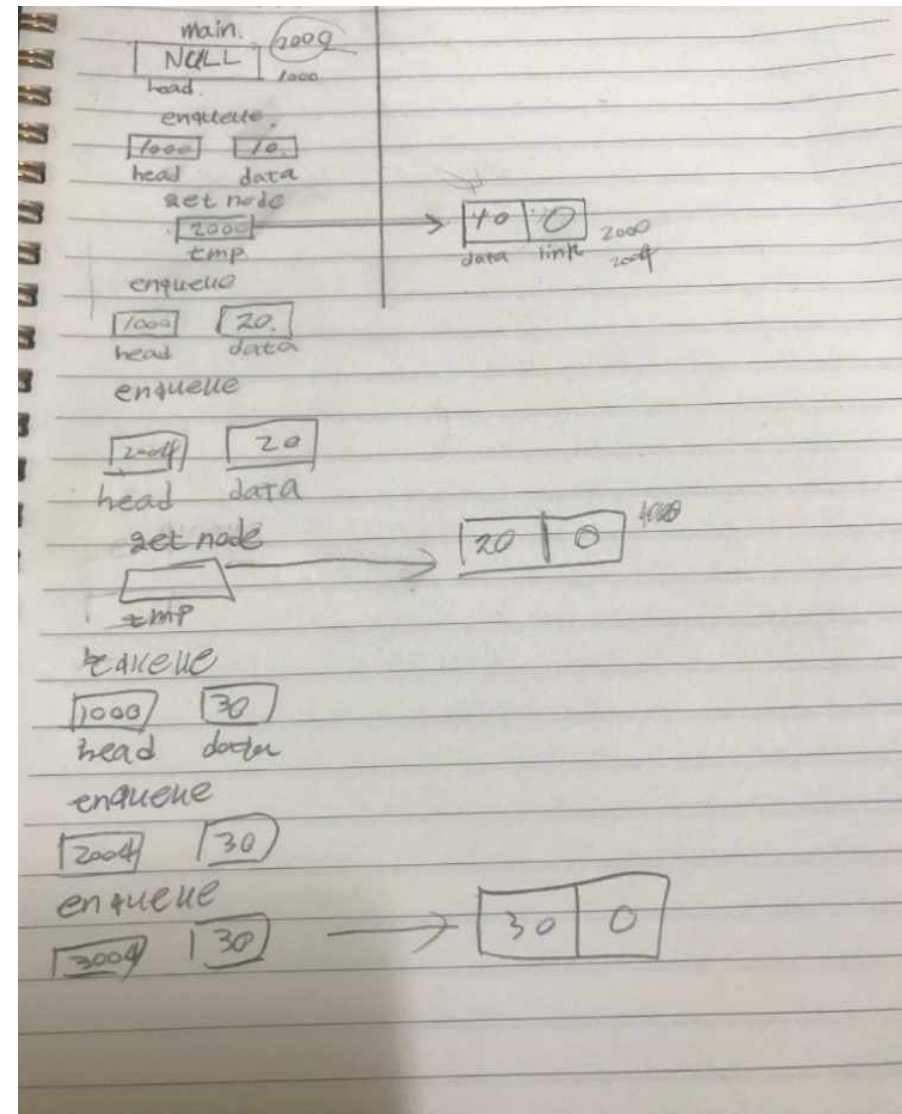 main.
NULL 2000
head. 1000
enqueue.
1000 10.
head data
get node
2000
tmp
10 0 2000
data link 2004
enqueue
1000 20.
head data
enqueue
2004 20
head data
get node
20 0
tmp
1000 30
head
enqueue
2004 30
enqueue
3004 30
30 0